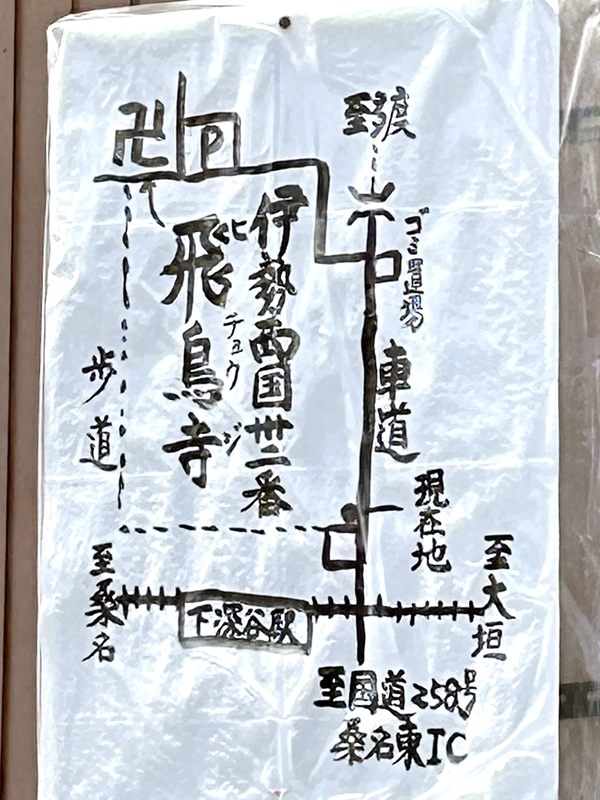 至多度
卍
P
ゴミ置場
伊勢西国卅二番
飛鳥寺
ヒチョウジ
車道
歩道
現在地
至桑名
下深谷駅
至大垣
至国道258号
桑名東IC